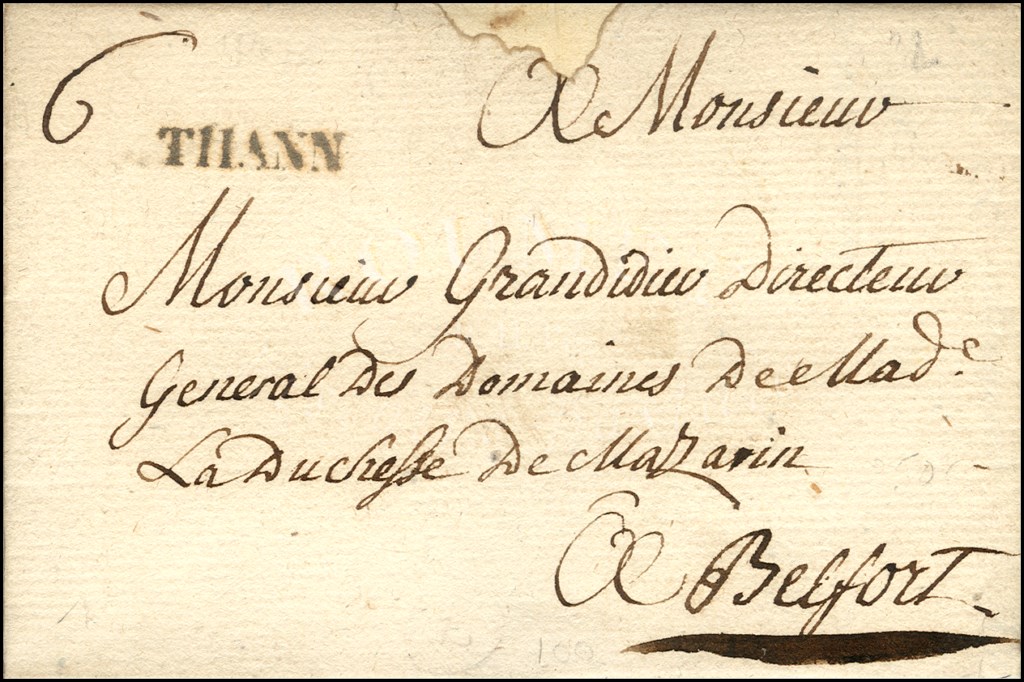 6
THANN
A Monsieur
Monsieur Grandidier Directeur
General Des Domaines De Made.
La Duchesse De Mazarin
A Belfort